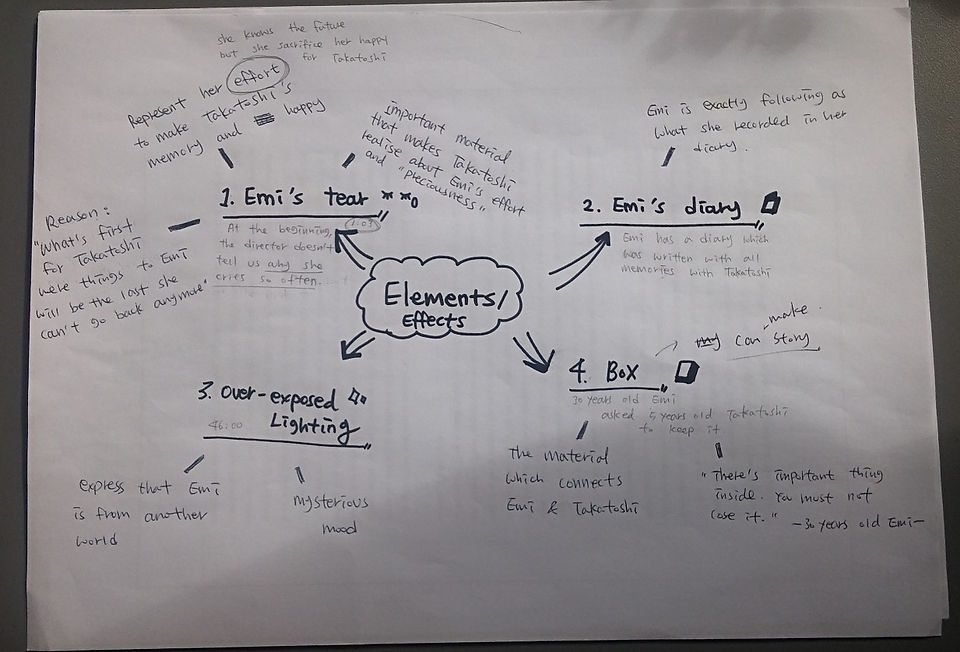 she knows the future
but she sacrifice her happy
for Takatoshi
Represent her effort
to make Takatoshi's
memory and happy
important material
that makes Takatoshi
realise about Emi's effort
and "preciousness"
1. Emi's tear
1:09
At the beginning,
the director doesn't
tell us why she
cries so often.
Reason:
"What's first
for Takatoshi
were things to Emi
will be the last she
can't go back anymore"
Emi is exactly following as
what she recorded in her
diary.
2. Emi's diary
Emi has a diary which
was written with all
memories with Takatoshi
Elements/
Effects
3. over-exposed
Lighting
46:00
express that Emi
is from another
world
mysterious
mood
make.
my can story
4. Box
30 years old Emi
asked 5 years old Takatoshi
to keep it
The material
which connects
Emi & Takatoshi
"There's important thing
inside. You must not
lose it."
-30 years old Emi-